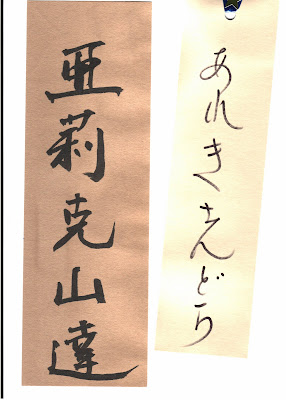 あれきさんどら
亜莉克山達